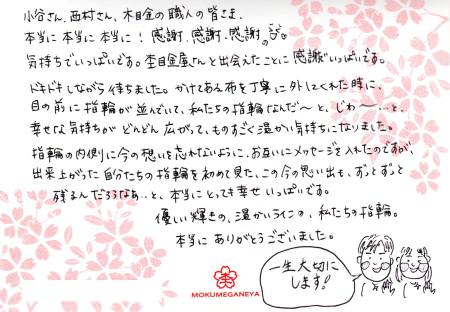 小谷さん、西村さん、木目金の職人の皆さま、
本当に本当に本当に！感謝、感謝、感謝のこの
気持ちでいっぱいです。杢目金屋さんと出会えたことに感謝でいっぱいです。
ドキドキしながら待ちました。かけてある布を丁寧に外してくれた時に、
目の前に指輪が並んでいて、私たちの指輪なんだ〜と、じわ〜…と、
幸せな気持ちが どんどん広がって、ものすごく温かい気持ちになりました。
指輪の内側に今の想いを忘れないように、お互いにメッセージを入れたのですが、
出来上がった自分たちの指輪を初めて見た、この今の思い出も、ずっとずっと
残るんだろうなあ…と、本当にとっても幸せいっぱいです。
優しい輝きの、温かいラインの、私たちの指輪。
本当に ありがとうございました。
一生大切に
します！
MOKUMEGANEYA